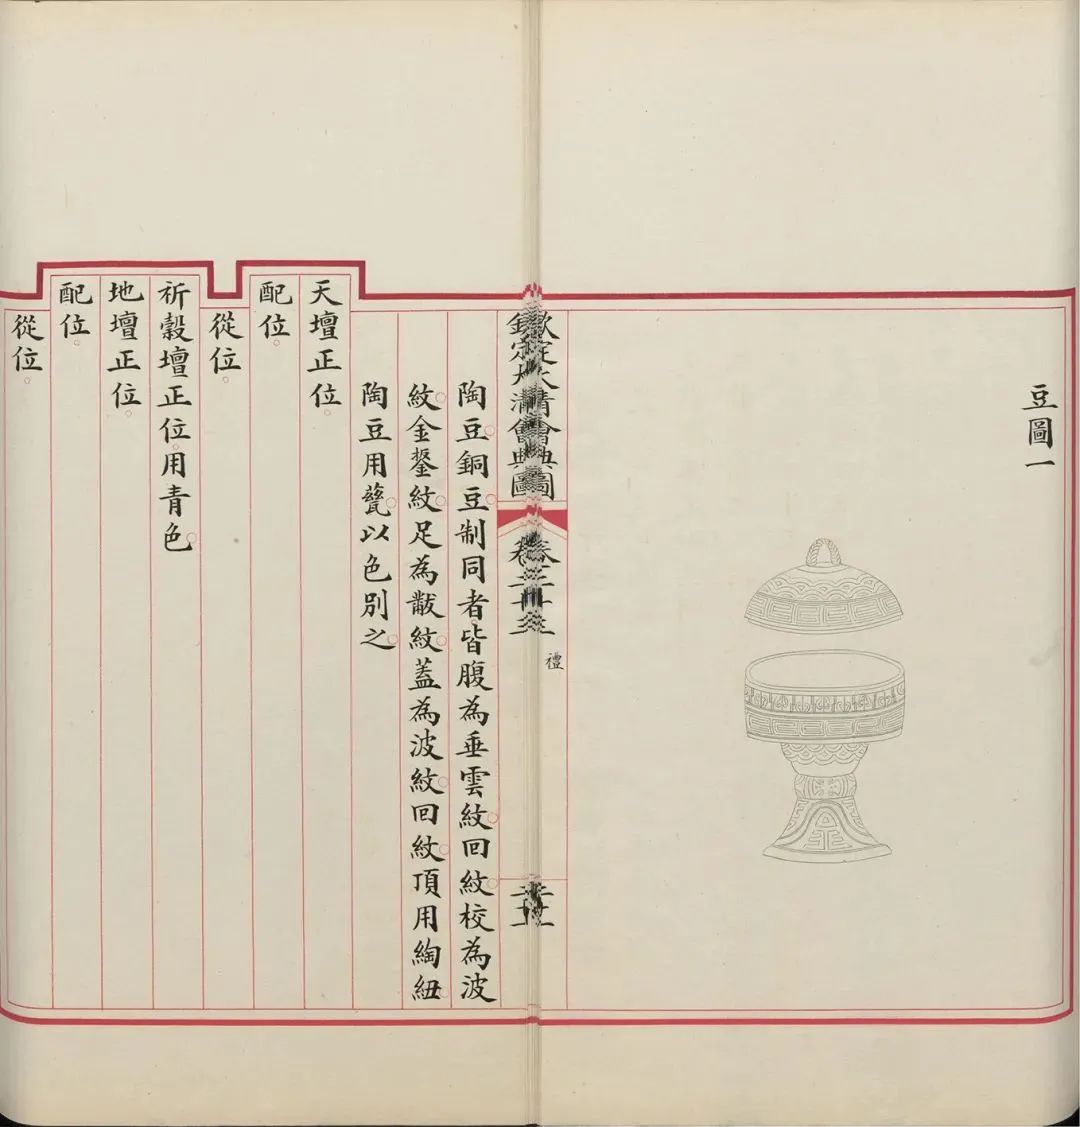 豆圖一
欽定大清會典圖
禮
陶豆。銅豆。制同者。皆腹為垂雲紋。回紋。校為波
紋。金鋬紋。足為黻紋。蓋為波紋。回紋。頂用綯紐。
陶豆用甆。以色別之。
天壇正位。
配位。
從位。
祈穀壇正位。用青色。
地壇正位。
配位。
從位。